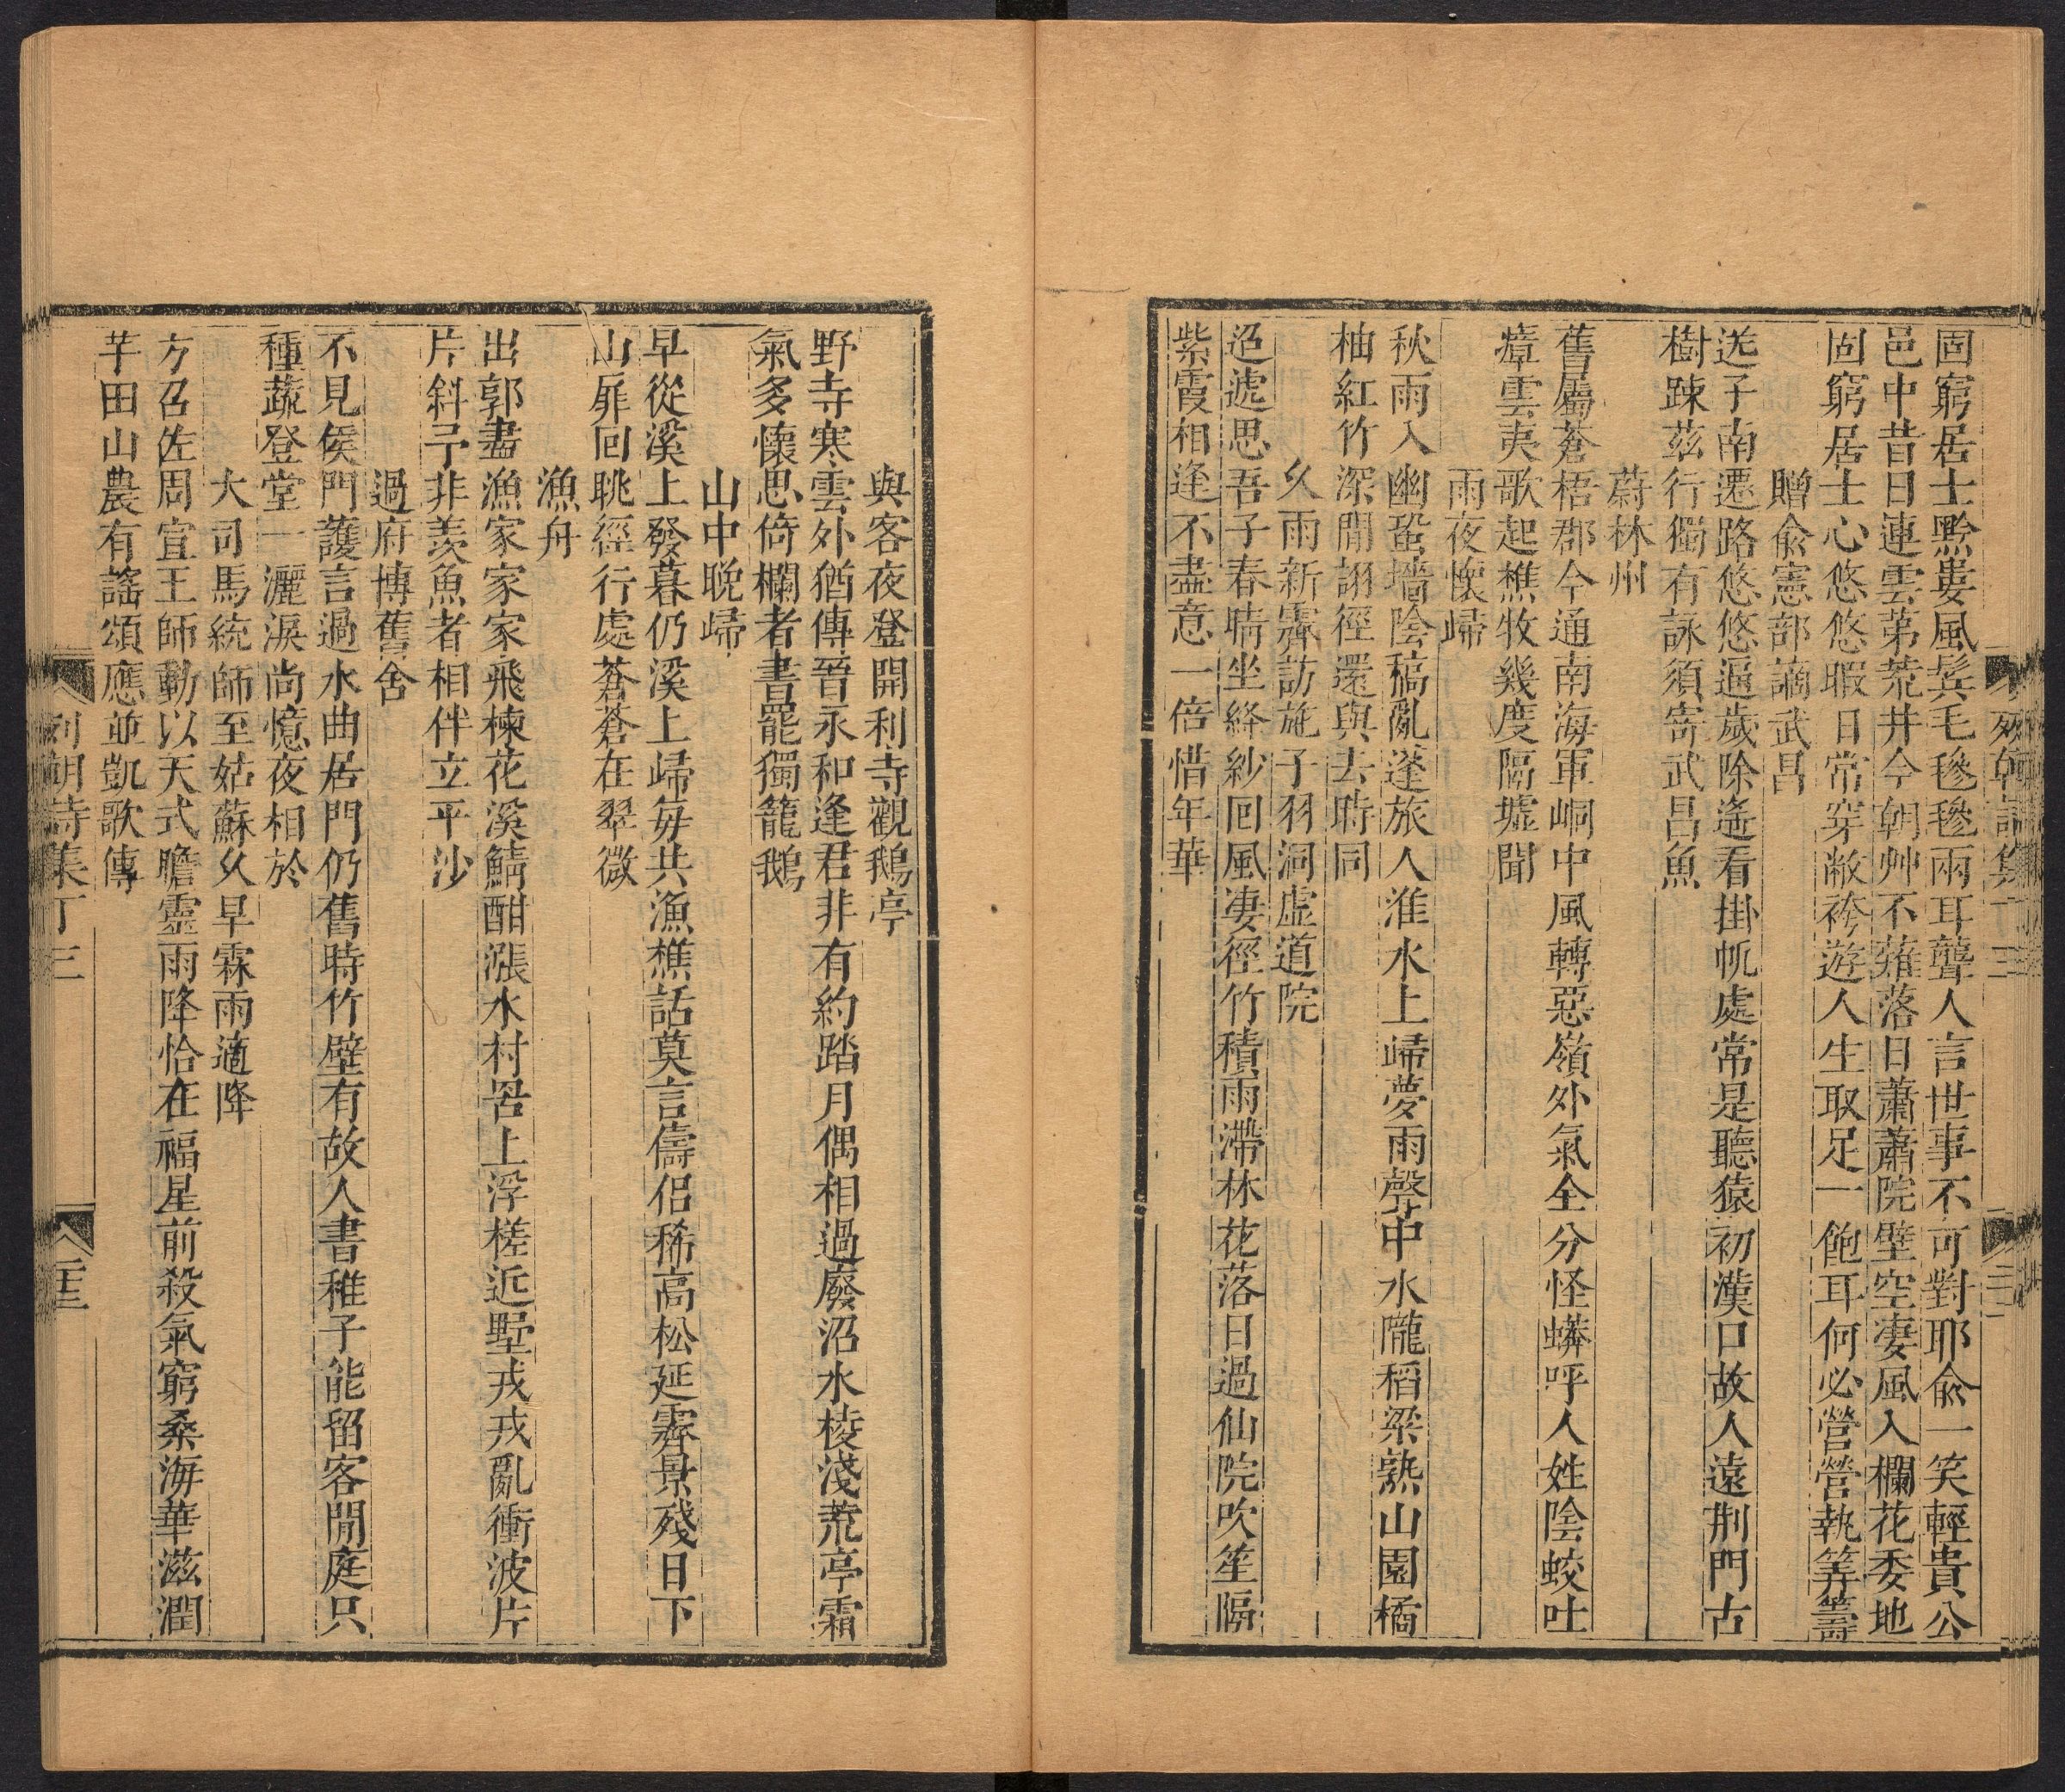 固窮居士黔婁風鬂毛毿毿兩耳聾人言世事不可對耶俞一笑輕貴公
邑中昔日連雲第荒井今朝艸不薙落日蕭蕭院壁空淒風入欄花委地
固窮居士心悠悠暇日常穿敝袴遊人生取足一飽耳何必營營執筭籌
贈俞憲部謫武昌
送子南遷路悠悠逼歲除遙看掛帆處常是聽猿初漢口故人遠荆門古
樹踈茲行獨有詠須寄武昌魚
蔚林州
舊屬蒼梧郡今通南海軍峒中風轉惡嶺外氣全分怪蟒呼人姓陰蛟吐
瘴雲夷歌起樵牧幾度隔墟聞
雨夜懷歸
秋雨入幽蛩墻陰稿亂蓬旅人淮水上歸夢雨聲中水隴稻粱熟山園橘
柚紅竹深開詡徑還與去時同
久雨新霽訪施子羽洞虛道院
迢遞思吾子春晴坐絳紗回風淒徑竹積雨滯林花落日過仙院吹笙隔
紫霞相逢不盡意一倍惜年華
與客夜登開利寺觀鵝亭
野寺寒雲外猶傳晉永和逢君非有約踏月偶相過廢沼水棱淺荒亭霜
氣多懷思倚欄者書罷獨籠鵝
山中晚歸
早從溪上發暮仍溪上歸每共漁樵話莫言儔侶稀高松延霽景殘日下
山扉回眺經行處蒼蒼在翠微
漁舟
出郭盡漁家家家飛楝花溪鯖酣漲水村罟上浮槎近墅戎戎亂衝波片
片斜予非羨魚者相伴立平沙
過府博舊舍
不見侯門護言過水曲居門仍舊時竹壁有故人書稚子能留客閒庭只
種蔬登堂一灑淚尚憶夜相於
大司馬統師至姑蘇久旱霖雨適降
方召佐周宣王師動以天式瞻靈雨降恰在福星前殺氣窮桑海華滋潤
芋田山農有謠頌應並凱歌傳
列朝詩集丁三